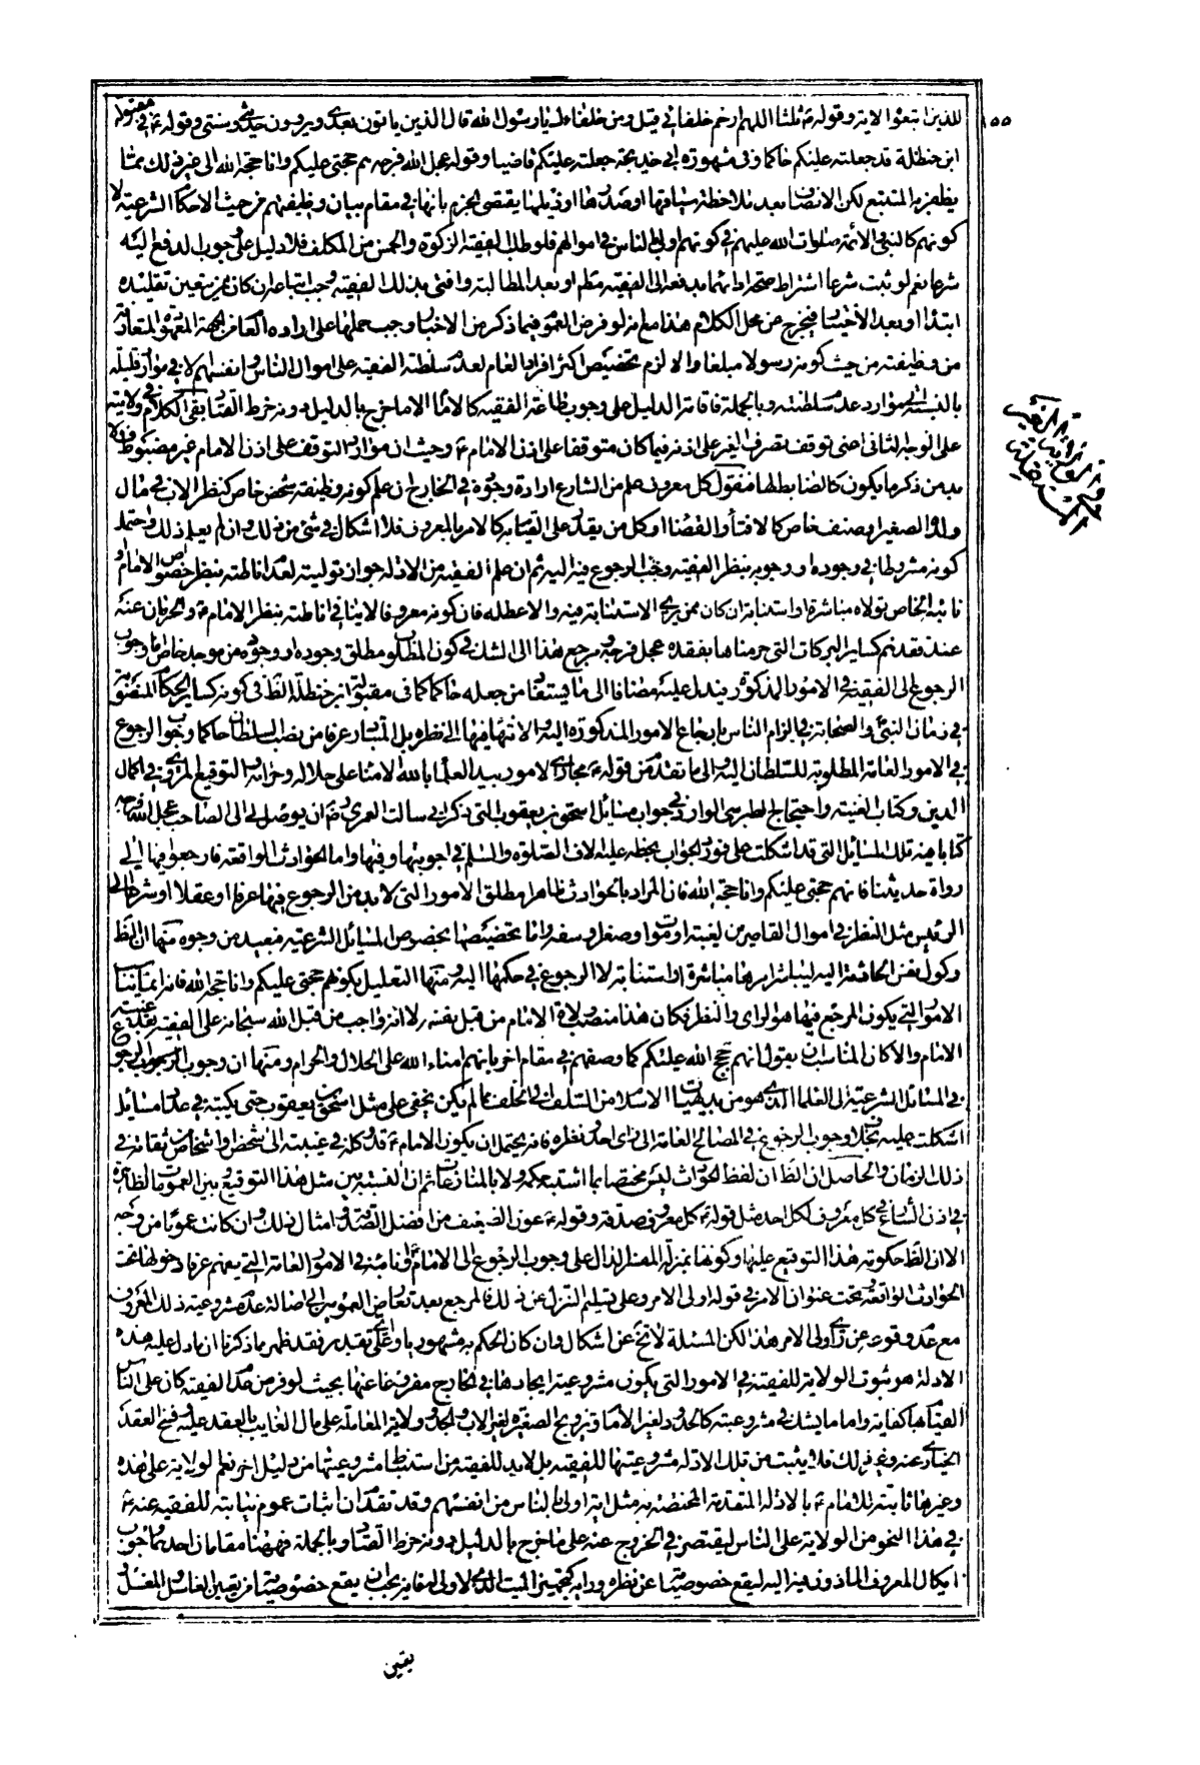 للذين اتبعوا الاية وقوله ع ثلثا اللهم ارحم خلفائي قيل ومن خلفاءك يا رسول الله قال الذين ياتون بعدي ويروون حديثي وسنتي وقوله ع في مقبولة
١٥٥
ابن حنظلة قد جعلته عليكم حاكما وفي مشهورة ابي خديجة جعلته عليكم قاضيا وقوله عجل الله فرجه هم حجتي عليكم وانا حجة الله الى غير ذلك مما
يظفر به المتتبع لكن الانصاف بعد ملاحظة سياقها او صدرها او ذيلها يقتضي الجزم بانها في مقام بيان وظيفتهم من حيث الاحكام الشرعية لا
كونهم كالنبي والائمة صلوات الله عليهم في كونهم اولى بالناس في اموالهم فلو طلب الفقيه الزكوة والخمس من المكلف فلا دليل على وجوب الدفع اليه
شرعا نعم لو ثبت شرعا اشتراط صحة ادائهما بدفعه الى الفقيه مطلقا او بعد المطالبة وافتى بذلك الفقيه وجب اتباعه ان كان ممن يتعين تقليده
ابتداء او بعد الاختيار فيخرج عن محل الكلام هذا مع انه لو فرض العموم فيما ذكر من الاخبار وجب حملها على ارادة العام من الجهة المعهودة المتعارفة
من وظيفته من حيث كونه رسولا مبلغا والا لزم تخصيص اكثر افراد العام لعدم سلطنة الفقيه على اموال الناس وانفسهم الا في موارد قليلة
بالنسبة الى موارد عدم سلطنته وبالجملة فاقامة الدليل على وجوب طاعة الفقيه كالامام الا ما خرج بالدليل دونه خرط القتاد بقي الكلام في ولايته
على الوجه الثاني اعني توقف تصرف الغير على اذنه فيما كان متوقفا على اذن الامام ع وحيث ان موارد التوقف على اذن الامام غير مضبوطة فلا
بد من ذكر ما يكون كالضابط لها فنقول كل معروف علم من الشارع ارادة وجوده في الخارج ان علم كونه وظيفة شخص خاص كنظر الاب في مال
ولده الصغير او صنف خاص كالافتاء والقضاء او كل من يقدر على القيام به كالامر بالمعروف فلا اشكال في شئ من ذلك وان لم يعلم ذلك واحتمل
كونه مشروطا في وجوده او وجوبه بنظر الفقيه وجب الرجوع فيه اليه ثم ان علم الفقيه من الادلة جواز توليته لعدم اناطته بنظر خصوص الامام او
نائبه الخاص تولاه مباشرة او استنابة ان كان ممن يرى الاستنابة فيه والا عطله فان كونه معروفا لا ينافي اناطته بنظر الامام ع والحرمان عنه
عند فقدهم كساير البركات التي حرمناها بفقده عجل فرجه ومرجع هذا الى الشك في كون المطلوب مطلق وجوده او وجوده من موجد خاص اما وجوب
الرجوع الى الفقيه في الامور المذكورة فيدل عليه مضافا الى ما يستفاد من جعله حاكما كما في مقبولة ابن حنطلة الظ في كونه كساير الحكام المنصوبة
في زمان النبي والصحابة في الزام الناس بارجاع الامور المذكورة اليه والانتهاء فيها الى نظره بل المتبادر عرفا من نصب السلطان حاكما وجوب الرجوع
في الامور العامة المطلوبة للسلطان اليه والى ما تقدم من قوله ع مجاري الامور بيد العلماء بالله الامناء على حلاله وحرامه التوقيع المروي في اكمال
الدين وكتاب الغيبة واحتجاج الطبرسي الوارد في جواب مسائل اسحق بن يعقوب التي ذكر اني سالت العمري رض ان يوصل لي الى الصاحب عجل الله فرجه
كتابا فيه تلك المسائل التي قد اشكلت علي فورد الجواب بخطه عليه الاف الصلوة والسلم في اجوبتها وفيها واما الحوادث الواقعة فارجعوا فيها الى
رواة حديثنا فانهم حجتي عليكم وانا حجة الله فان المراد بالحوادث ظاهرا مطلق الامور التي لا بد من الرجوع فيها عرفا او عقلا او شرعا الى
الرئيس مثل النظر في اموال القاصرين لغيبة او موت او صغر او سفه واما تخصيصها بخصوص المسائل الشرعية فبعيد من وجوه منها ان الظ
وكول نفس الحادثة اليه ليباشر امرها مباشرة او استنابة لا الرجوع في حكمها اليه ومنها التعليل بكونهم حجتي عليكم وانا حجة الله فانه انما يناسب
الامور التي يكون المرجع فيها هو الراى والنظر فكان هذا منصب ولاة الامام من قبل نفسه لا انه واجب من قبل الله سبحانه على الفقيه بعد غيبة
الامام والا كان المناسب ان يقول انهم حجج الله عليكم كما وصفهم في مقام اخر بانهم امناء الله على الحلال والحرام ومنها ان وجوب الرجوع
في المسائل الشرعية الى العلماء الذي هو من بديهيات الاسلام من السلف الى الخلف مما لم يكن يخفى على مثل اسحق بن يعقوب حتى يكتبه في عداد مسائل
اشكلت عليه بخلاف وجوب الرجوع في المصالح العامة الى راى احد ونظره فانه يحتمل ان يكون الامام ع قد وكله في غيبته الى شخص او اشخاص من ثقاته في
ذلك الزمان والحاصل ان الظ ان لفظ الحوادث ليس مختصا بما اشتبه حكمه ولا بالمنازعات ثم ان النسبة بين مثل هذا التوقيع وبين العمومات الظاهرة
في اذن الشارع في كل معروف لكل احد مثل قوله ع كل معروف صدقة وقوله ع عون الضعيف من افضل الصدقة وامثال ذلك وان كانت عموما من وجه
الا ان الظ حكومة هذا التوقيع عليها وكونها بمنزلة المفسر الدال على وجوب الرجوع الى الامام ع او نائبه في الامور العامة التي يفهم عرفا دخولها تحت
الحوادث الواقعة وتحت عنوان الامر في قوله اولي الامر وعلى تسليم التنزل عن ذلك فالمرجع بعد تعارض العمومين الى اصالة عدم مشروعية ذلك المعروف
مع عدم وقوعه عن راى ولي الامر هذا لكن المسئلة لا تخ عن اشكال وان كان الحكم به مشهوريا وعلى اي تقدير فقد ظهر بما ذكرنا ان ما دل عليه هذه
الادلة هو ثبوت الولاية للفقيه في الامور التي يكون مشروعية ايجادها في الخارج مفروغا عنها بحيث لو فرض عدم الفقيه كان على الناس
القيام بها كفاية واما ما يشك في مشروعيته كالحدود لغير الامام وتزويج الصغيرة لغير الاب والجد وولاية المعاملة على مال الغايب بالعقد عليه وفسخ العقد
الخياري عنه وغير ذلك فلا يثبت من تلك الادلة مشروعيتها للفقيه بل لا بد للفقيه من استنباط مشروعيتها من دليل اخر نعم الولاية على هذه
وغيرها ثابتة للامام ع بالادلة المتقدمة المختصة به مثل اية اولى بالناس من انفسهم وقد تقدم ان اثبات عموم نيابته للفقيه عنه ع
في هذا النحو من الولاية على الناس ليقتصر في الخروج عنه على ما خرج بالدليل دونه خرط القتاد وبالجملة فههنا مقامان احدهما وجوب
ايكال المعروف الماذون فيه اليه ليقع خصوصياته عن نظره ورايه كتجهيز الميت الذي لا ولي له فانه يجب ان يقع خصوصياته من تعيين الغاسل والمغسل و
يقين